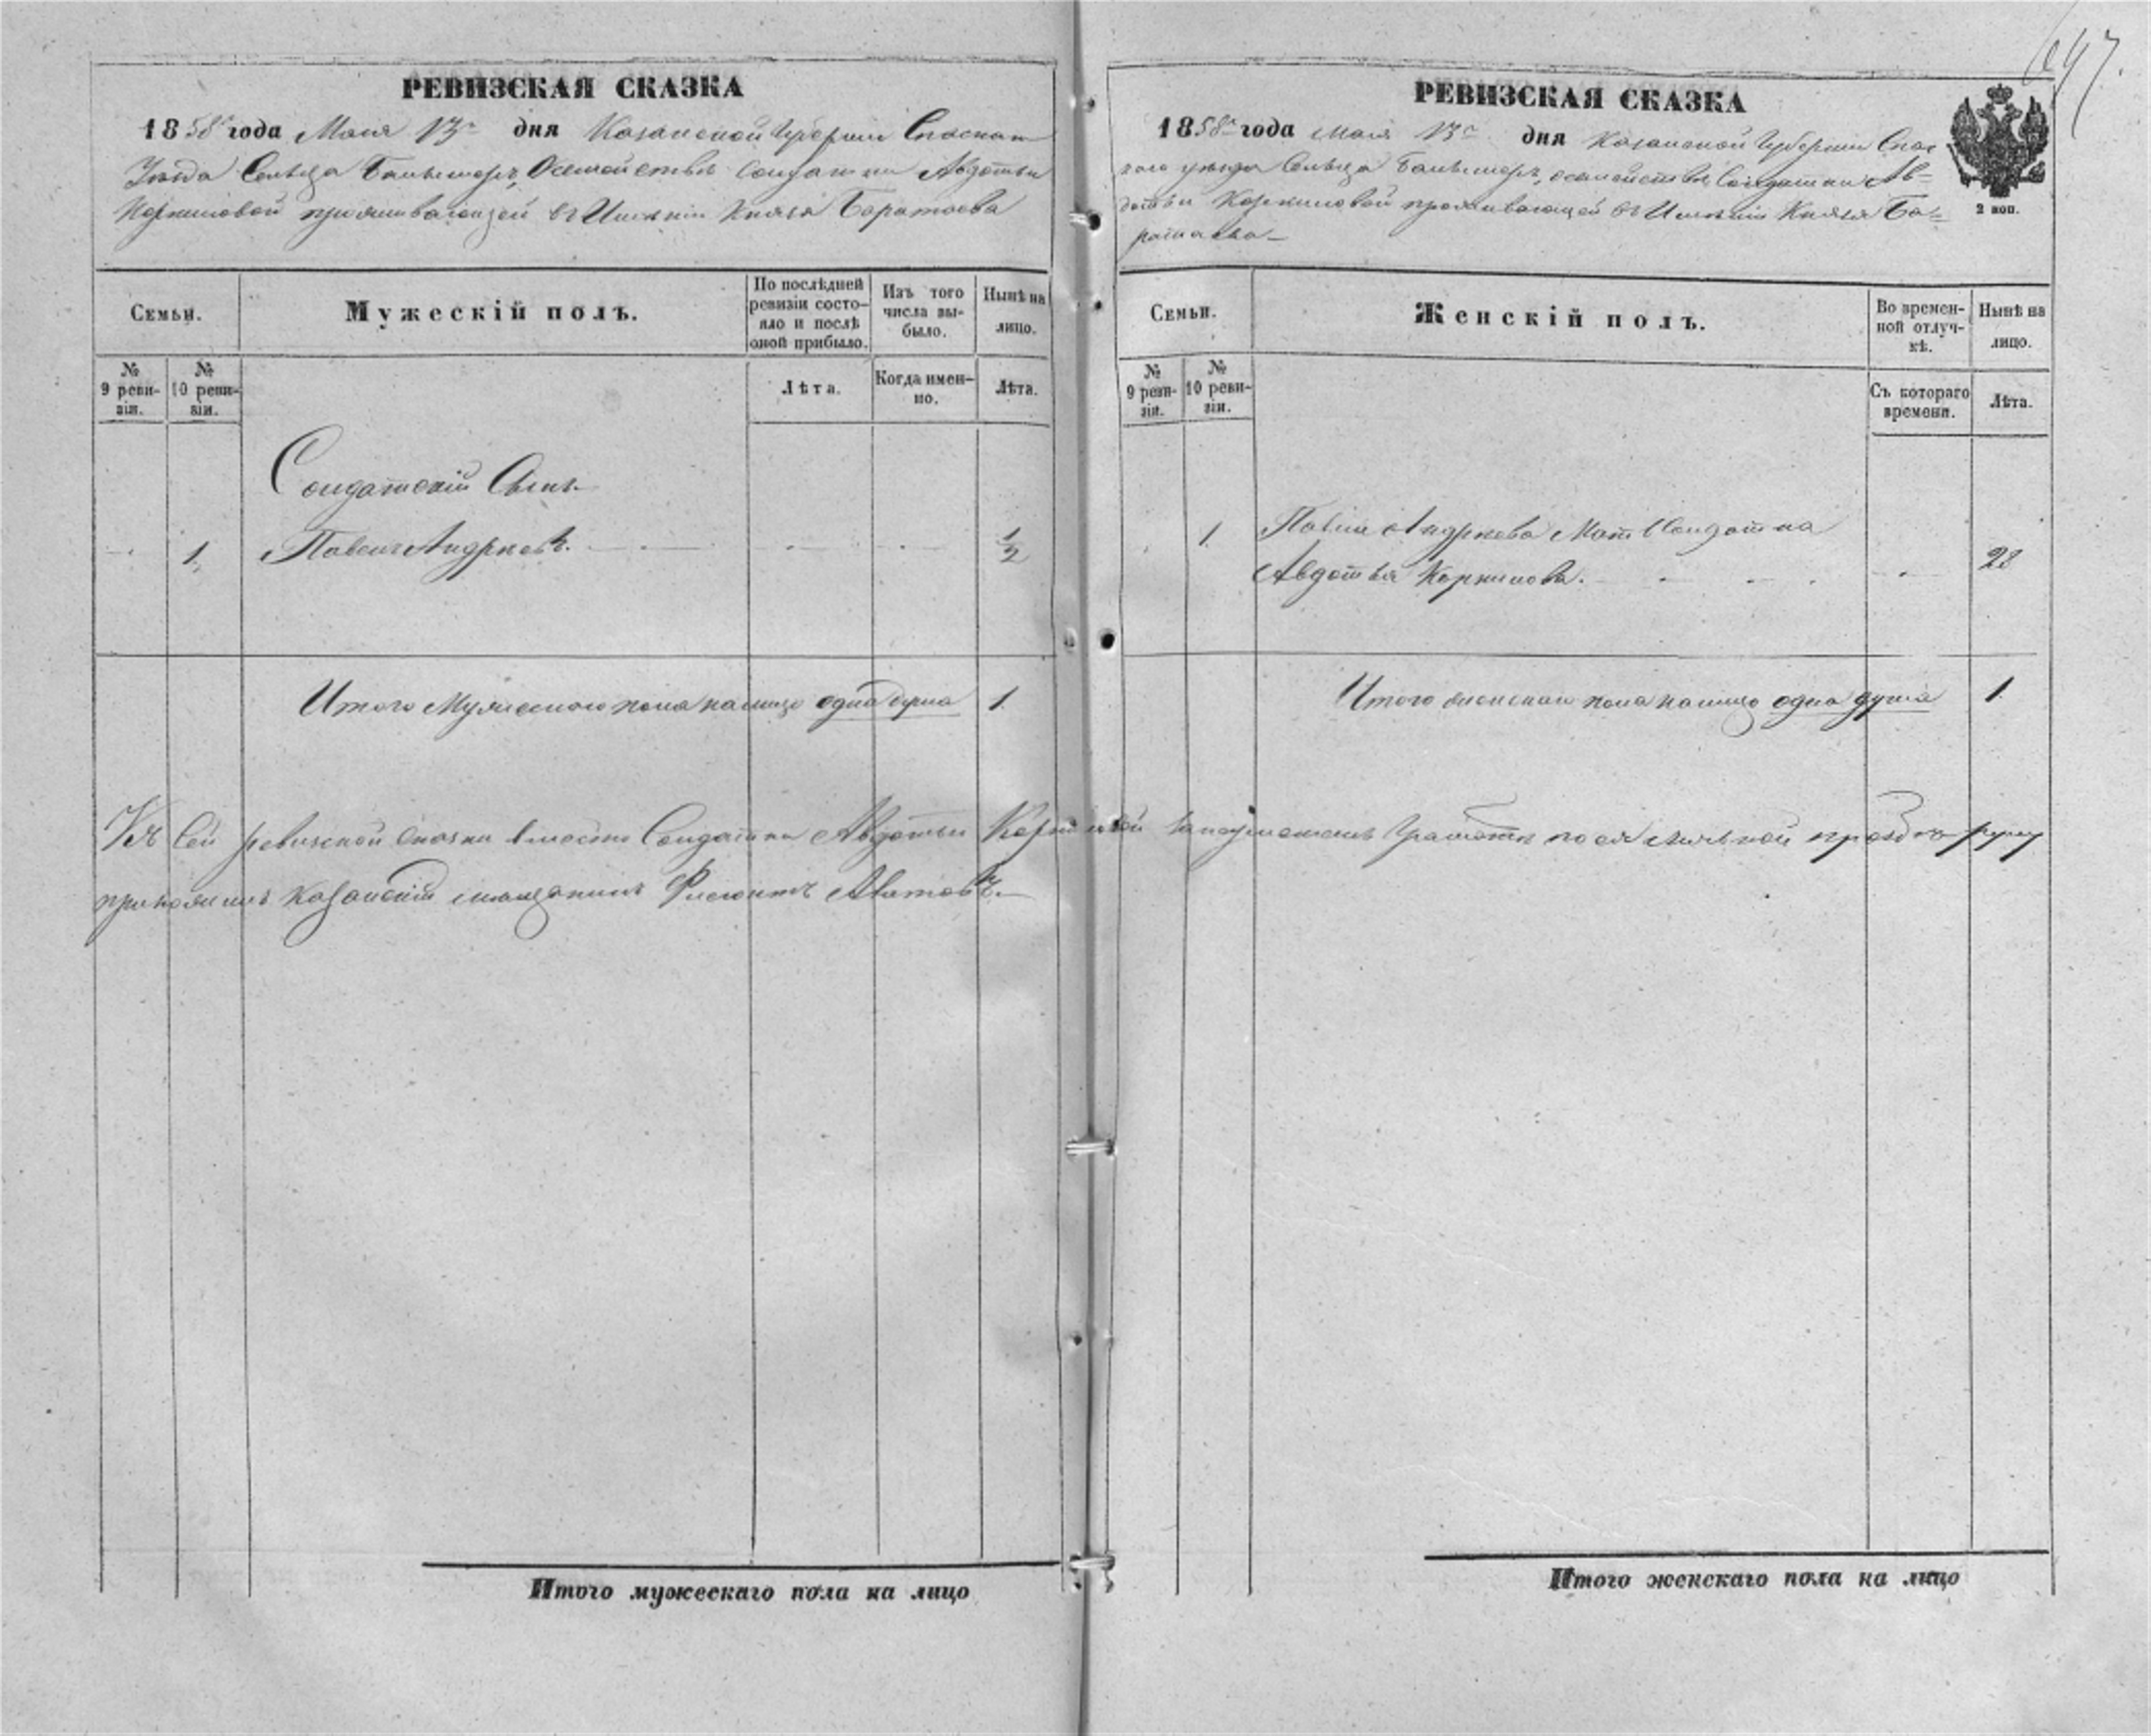 697.
РЕВИЗСКАЯ СКАЗКА
1858го года Мая 13го дня Казанской Губерніи Спаскаго
Уѣзда Сельца Осемействѣ Солдатки Авдотьи
Корниловой проживающей въ Имѣніи Князя Баратаева
Семьи.
Мужескій полъ.
По послѣдней ревизіи состояло и послѣ оной прибыло.
Изъ того числа выбыло.
Нынѣ на лицо.
№ 9 ревизіи.
№ 10 ревизіи.
Лѣта.
Когда именно.
Лѣта.
Солдатскій Сынъ
1. Павелъ Андреевъ. 1/2
Итого Мужескаго пола налицо одна душа 1.
РЕВИЗСКАЯ СКАЗКА
1858го года Мая 13го дня Казанской Губерніи Спас
каго уѣзда Сельца осемействѣ Солдатки Ав=
дотьи Корниловой проживающей въ Имѣніи Князя Ба=
ратаева
2 коп.
Семьи.
Женскій полъ.
Во временной отлучкѣ.
Нынѣ на лицо.
№ 9 ревизіи.
№ 10 ревизіи.
Съ котораго времени.
Лѣта.
1. Павла Андреева Мать Солдатка
Авдотья Корнилова. 28
Итого женскаго пола налицо одна душа 1.
Къ Сей ревизской сказки вместо Солдатки Авдотьи Корниловой Грамоты по ея личной прозьбѣ руку
приложилъ Казанскій мещанинъ
Итого мужескаго пола на лицо
Итого женскаго пола на лицо